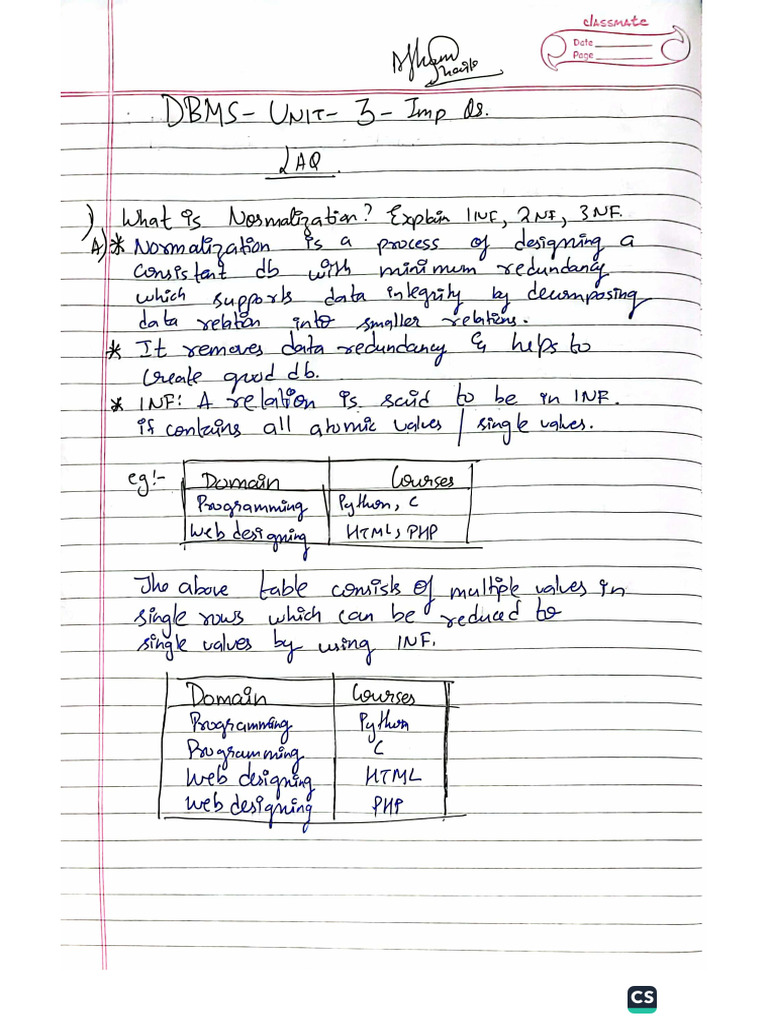 classmate
Date
Page
DBMS - UNIT - 3 - Imp Qs.
LAQ
1) What is Normalization? Explain 1NF, 2NF, 3NF.
A) * Normalization is a process of designing a
consistent db with minimum redundancy
which supports data integrity by decomposing
data relation into smaller relations.
* It removes data redundancy & helps to
create good db.
* 1NF: A relation is said to be in 1NF.
if contains all atomic values / single values.
eg:- Domain Courses
Programming Python, C
Web designing HTML, PHP
The above table consists of multiple values in
single rows which can be reduced to
single values by using 1NF.
Domain Courses
Programming Python
Programming C
Web designing HTML
Web designing PHP
CS